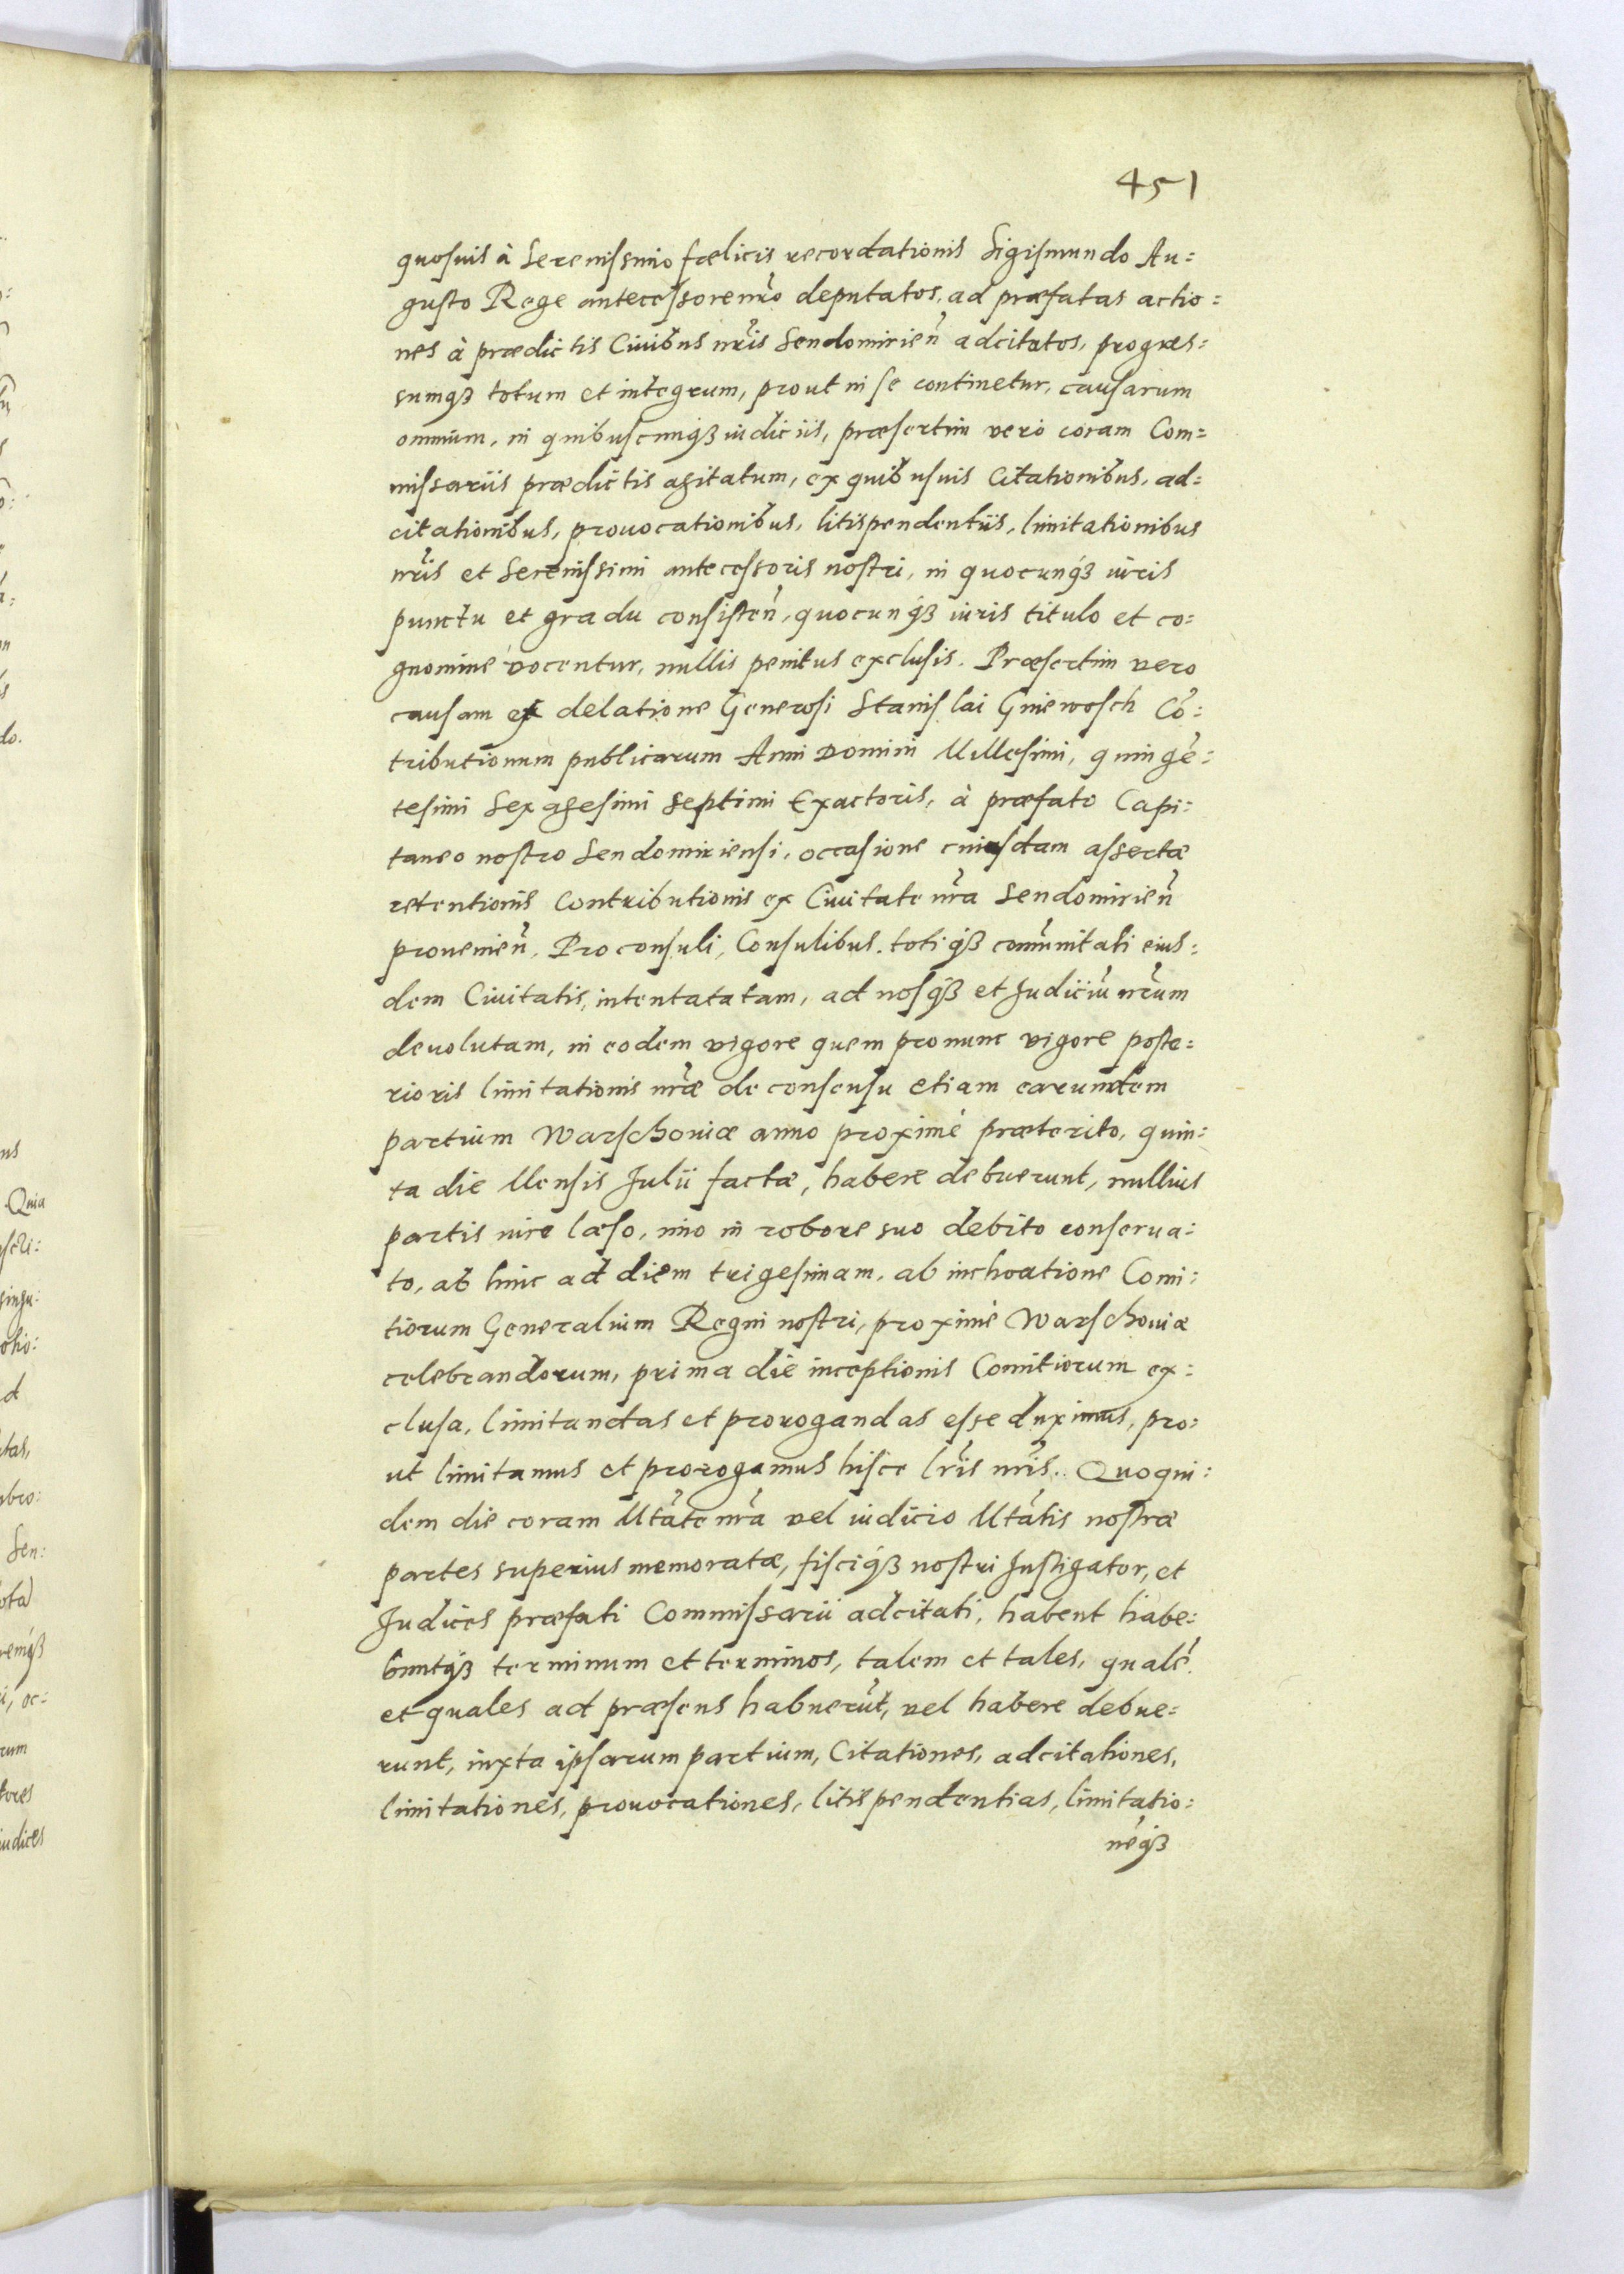 451
quosuis à Serenissimo fœlicis recordationis Sigismundo Au=
gusto Rege antecessore nr̃o deputatos, ad præfatas actio=
nes à prædictis Ciuibus nr̃is Sendomirien̄ adcitatos, progres=
sumqꝫ totum et integrum, prout in se continetur, causarum
omnium, in quibuscunqꝫ iudiciis, præsertim vero coram Com=
missariis prædictis agitatum, ex quibusuis Citationibus, ad=
citationibus, prouocationibus, litispendentiis, limitationibus
nr̃is et Serenissimi antecessoris nostri, in quocunqꝫ iuris
punctu et gradu consisten̄, quocunqꝫ iuris titulo et co=
gnomine vocentur, nullis penitus exclusis. Præsertim vero
causam ex delatione Generosi Stanislai Gniewosch Cō=
tributionum publicarum Anni Domini Millesimi, quingē=
tesimi Sexagesimi Septimi Exactoris, à præfato Capi=
taneo nostro Sendomiriensi, occasione cuiusdam assertæ
retentionis Contributionis ex Ciuitate nr̃a Sendomirien̄
prouenien̄, Proconsuli, Consulibus, totiqꝫ com̄unitati eius=
dem Ciuitatis, intentatatam, ad nosqꝫ et Judiciū nr̃um
deuolutam, in eodem vigore quem pronunc vigore poste=
rioris limitationis nr̃æ de consensu etiam earumdem
partium Warschouiæ anno proximè præterito, quin=
ta die Mensis Julii factæ, habere debuerunt, nullius
partis iure læso, imo in robore suo debito conserua=
to, ab hinc ad diem trigesimam, ab inchoatione Comi=
tiorum Generalium Regni nostri, proximè Warschouiæ
celebrandorum, prima die inceptionis Comitiorum ex=
clusa, limitandas et prorogandas esse duximus, pro=
ut limitamus et prorogamus hisce lr̃is nr̃is. Quoqui=
dem die coram Mtãte nr̃a vel iudicio Mtãtis nostræ
partes superius memoratæ, fisciqꝫ nostri Instigator, et
Judices præfati Commissarii adcitati, habent habe=
buntqꝫ terminum et terminos, talem et tales, qualē
et quales ad præsens habuerūt, vel habere debue=
runt, iuxta ipsarum partium, Citationes, adcitationes,
limitationes, prouocationes, litispendentias, limitatio=
nēqꝫ